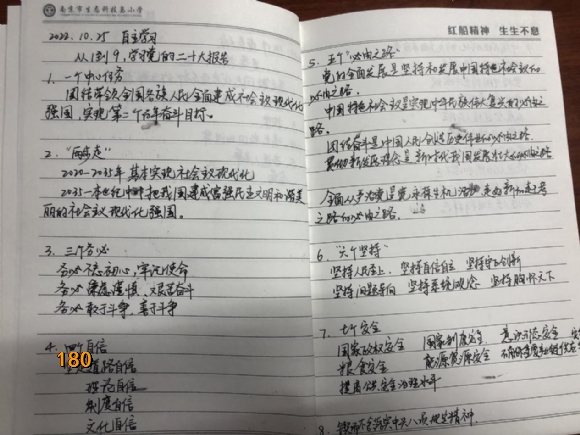 南京市生态科技岛小学
2022.10.25 自主学习
从1到9，学习党的二十大报告
1. 一个中心任务
团结带领全国各族人民全面建成社会主义现代化
强国，实现第二个百年奋斗目标。
2. "两步走"
2020-2035年 基本实现社会主义现代化
2035-本世纪中叶把我国建成富强民主文明和谐美
丽的社会主义现代化强国。
3. 三个务必
务必不忘初心，牢记使命
务必谦虚谨慎、艰苦奋斗
务必敢于斗争，善于斗争
4. 四个自信
180
道路自信
理论自信
制度自信
文化自信
红船精神 生生不息
5. 五个"必由之路"
党的全面领导是坚持和发展中国特色社会主义的
必由之路
中国特色社会主义是实现中华民族伟大复兴的必由之
路。
团结奋斗是中国人民创造历史伟业的必由之路
贯彻新发展理念是新时代我国发展壮大的必由之路
全面从严治党是党永葆生机活力、走好新的赶考
之路的必由之路。
6. "六个坚持"
坚持人民至上 坚持自信自立 坚持守正创新
坚持问题导向 坚持系统观念 坚持胸怀天下
7. 七个安全
国家政权安全 国家制度安全 意识形态安全
粮食安全 能源资源安全
提高公共安全治理水平
8. 锲而不舍落实中央八项规定精神.